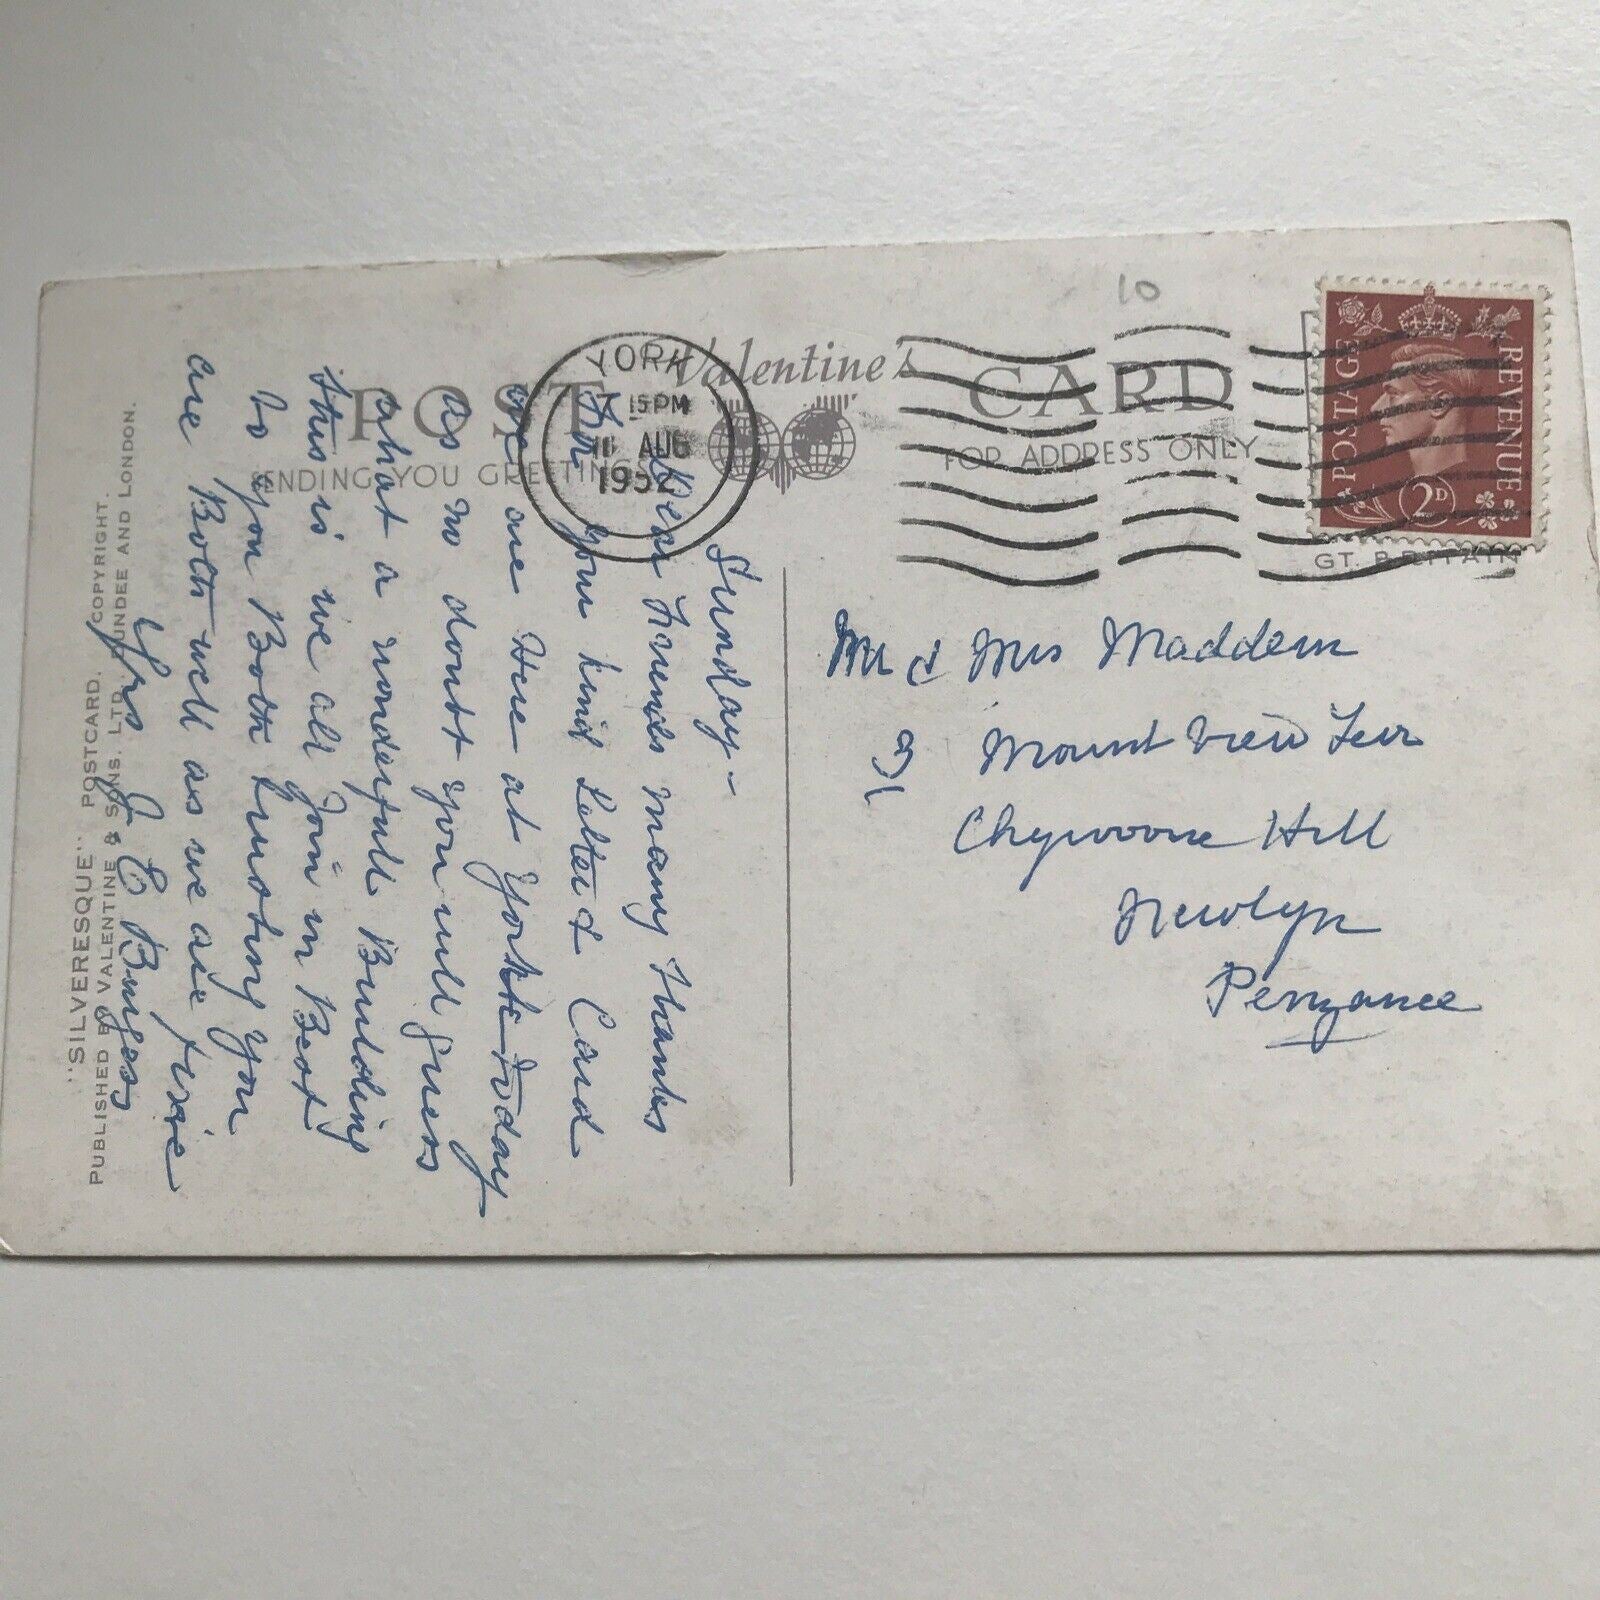 POST CARD
Valentine's
SENDING YOU GREETINGS
FOR ADDRESS ONLY
YORK
15PM
AUG
1952
10
POSTAGE
REVENUE
2D
GT. BRITAIN
Sunday -
Dear Friends many Thanks
For your kind Letter & Card
we are Here at York to day
as no doubt you will guess
what a wonderfull Building
this is we all Join in Best
to you Both trusting you
are Both well as we are
Yrs J E Burgess
Mr & Mrs Maddern
Mount View Terr
Chywoone Hill
Newlyn
Penzance
"SILVERESQUE" POSTCARD. COPYRIGHT.
PUBLISHED BY VALENTINE & SONS. LTD. DUNDEE AND LONDON.